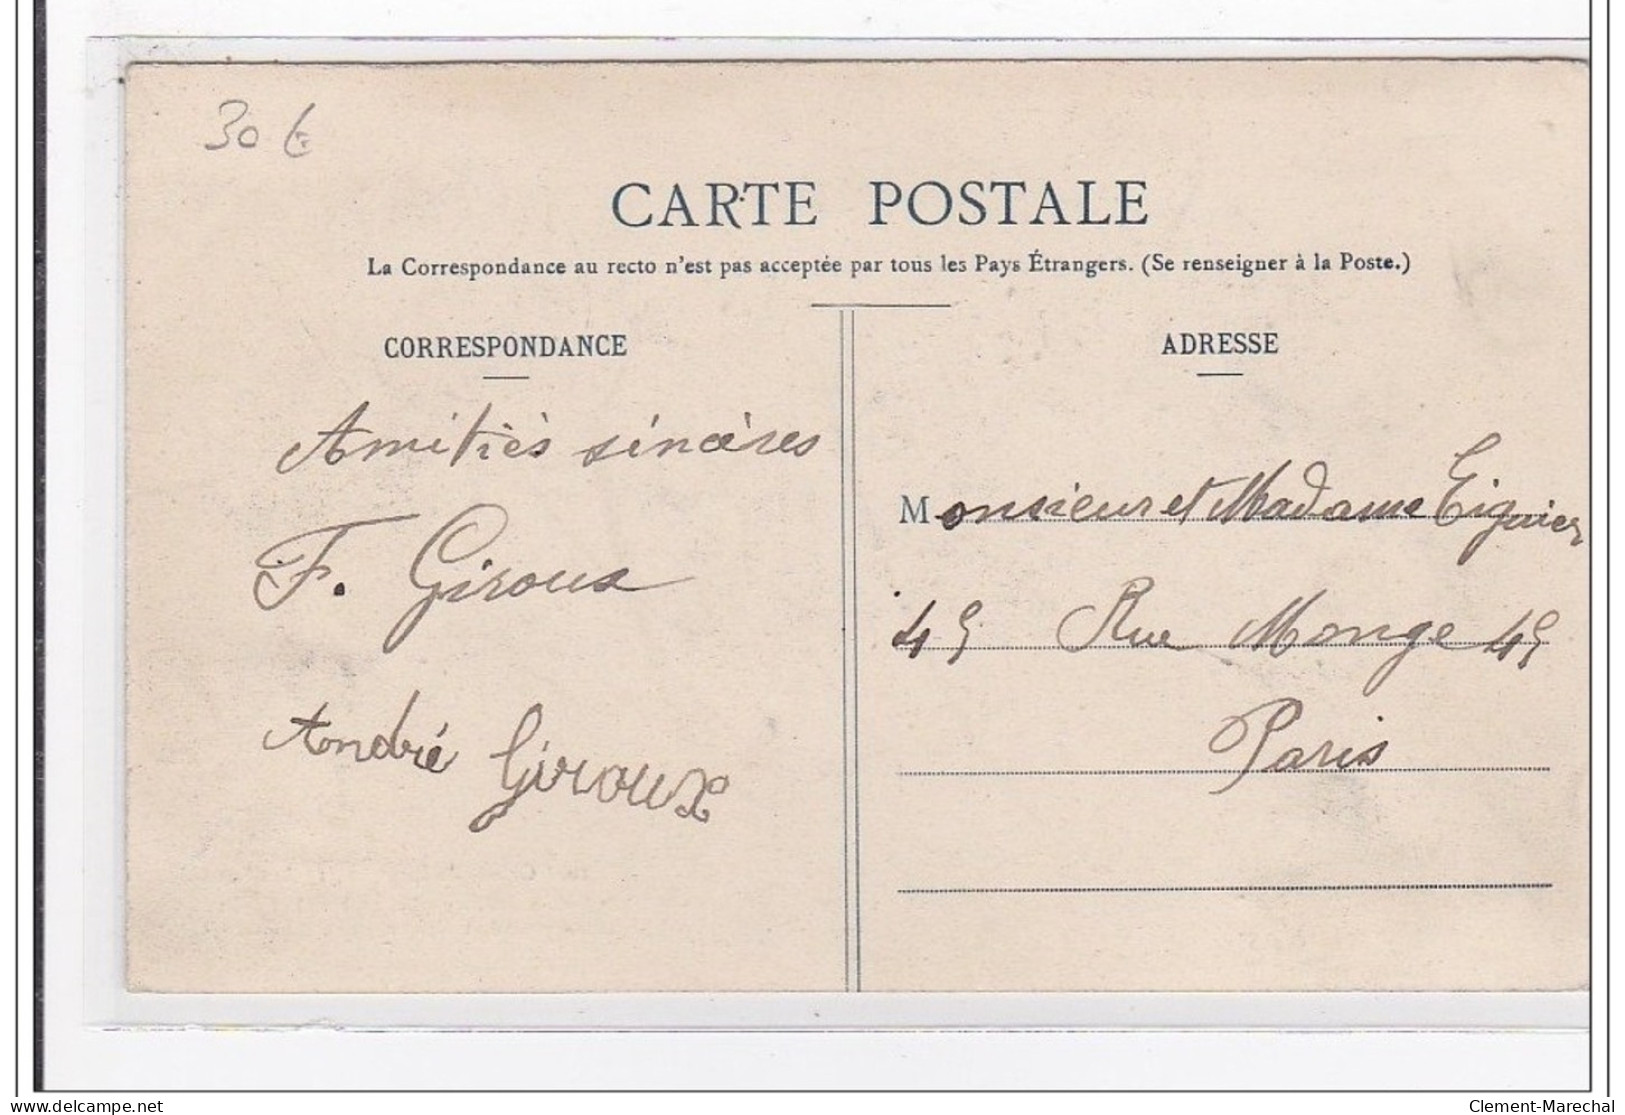 30 €
CARTE POSTALE
La Correspondance au recto n'est pas acceptée par tous les Pays Étrangers. (Se renseigner à la Poste.)
CORRESPONDANCE
Amitiés sincères
F. Giroux
André Giroux
ADRESSE
Monsieur et Madame Eiguier
45 Rue Monge 45
Paris
www.delcampe.net
Clement-Marechal